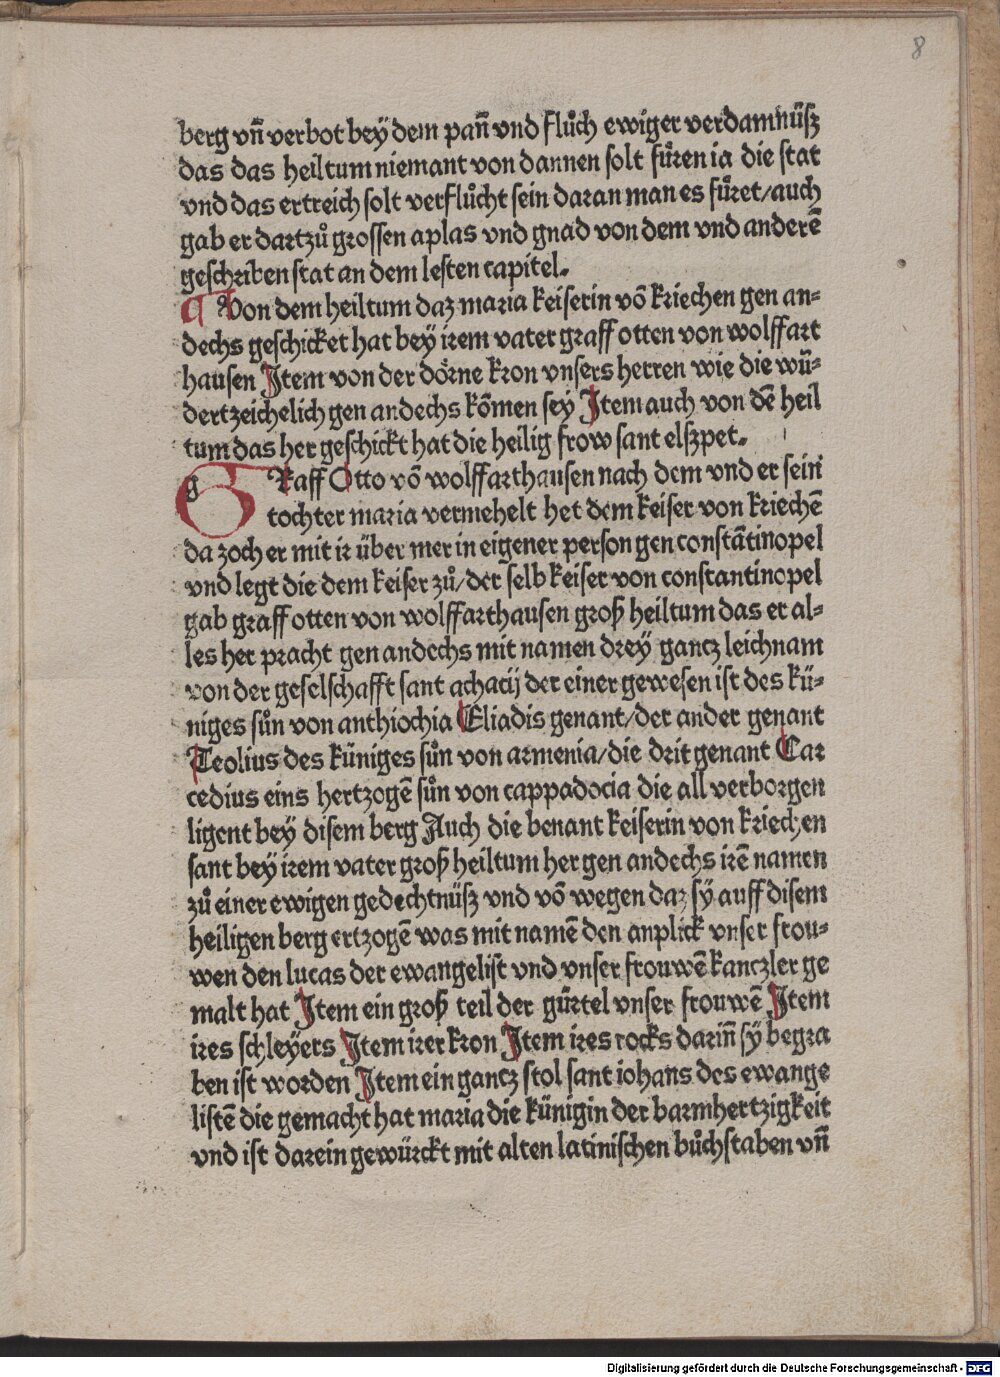 8
berg vn̄ verbot bey dem pan̄ vnd flůch ewiger verdamnüsz
das das heiltum niemant von dannen solt fu̇ren ia die stat
vnd das ertreich solt verflůcht sein daran man es fu̇ret/auch
gab er dartzů grossen aplas vnd gnad von dem vnd anderē
geschriben stat an dem lesten capitel.
¶ Von dem heiltum daz maria keiserin vō kriechen gen an⸗
dechs geschicket hat bey irem vater graff otten von wolffart
hausen Jtem von der dörne kron vnsers herren wie die wü⸗
dertzeichelich gen andechs kōmen sey Jtem auch von dē heil
tum das her geschickt hat die heilig frow sant elszpet.
g Raff Otto vō wolffarthausen nach dem vnd er sein
tochter maria vermehelt het dem keiser von kriechē
da zoch er mit ir über mer in eigener person gen constātinopel
vnd legt die dem keiser zů/der selb keiser von constantinopel
gab graff otten von wolffarthausen groß heiltum das er al⸗
les her pracht gen andechs mit namen drey gantz leichnam
von der geselschafft sant achacij der einer gewesen ist des kü⸗
niges sůn von anthiochia Eliadis genant/der ander genant
Teolius des küniges sůn von armenia/die drit genant Car
cedius eins hertzogē sůn von cappadocia die all verborgen
ligent bey disem berg Auch die benant keiserin von kriechen
sant bey irem vater groß heiltum her gen andechs irē namen
zů einer ewigen gedechtnüsz vnd vō wegen daz sÿ auff disem
heiligen berg ertzogē was mit namē den anplick vnser frou⸗
wen den lucas der ewangelist vnd vnser frouwē kanczler ge
malt hat Jtem ein groß teil der gürtel vnser frouwē Jtem
ires schleyers Jtem irer kron Jtem ires rocks darin̄ sÿ begra
ben ist worden Jtem ein gantz stol sant iohans des ewange
listē die gemacht hat maria die künigin der barmhertzigkeit
vnd ist darein gewürckt mit alten latinischen bůchstaben vn̄
Digitalisierung gefördert durch die Deutsche Forschungsgemeinschaft - DFG